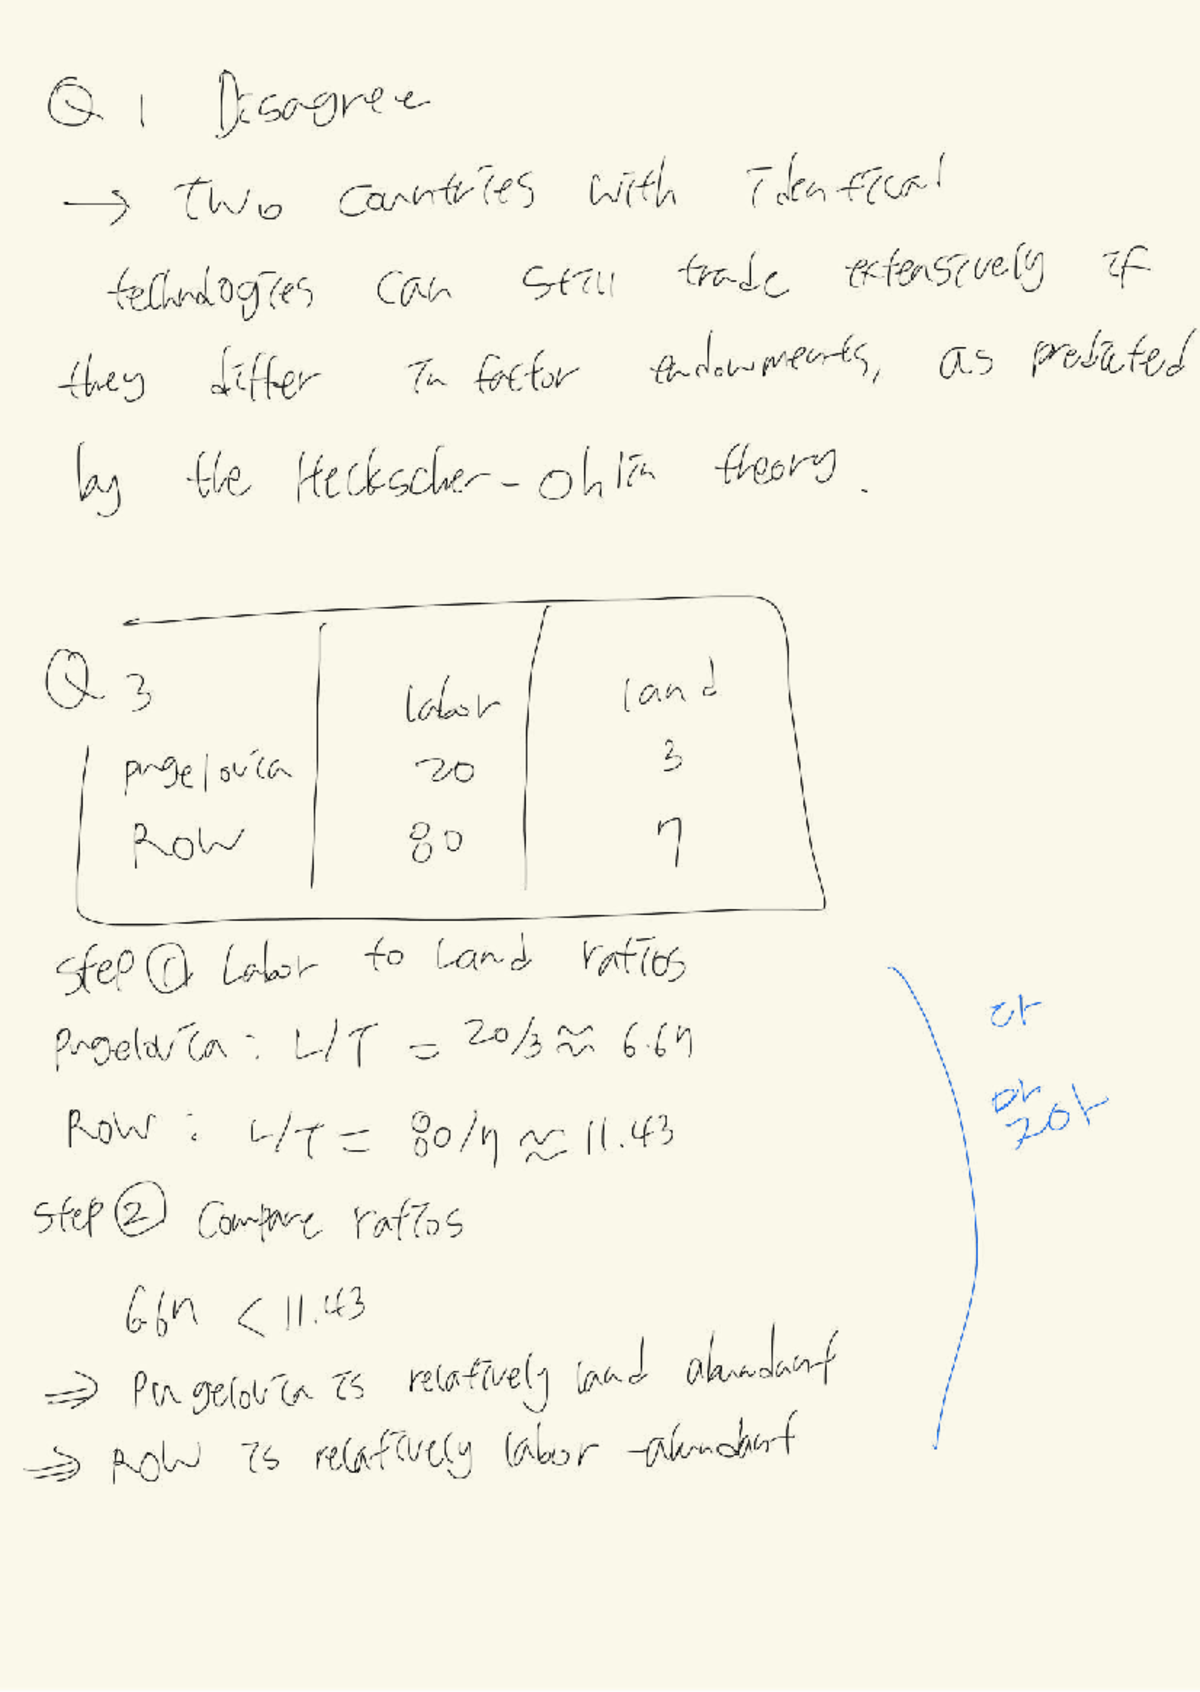 Q 1 Disagree
→ Two countries with identical
technologies can still trade extensively if
they differ in factor endowments, as predicted
by the Heckscher-Ohlin theory.
Q 3 labor land
pugelovica 20 3
ROW 80 7
step ① Labor to Land ratios
pugelovica : L/T = 20/3 ≈ 6.67
ROW : L/T = 80/7 ≈ 11.43
step ② Compare ratios
6.67 < 11.43
⇒ Pugelovica is relatively land abundant
⇒ ROW is relatively labor-abundant